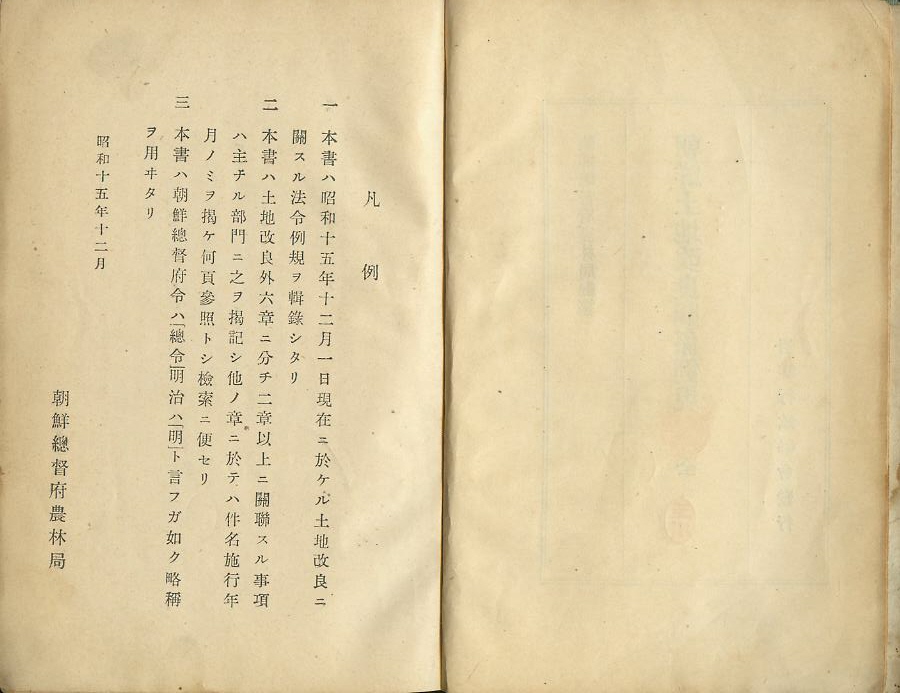 凡例
一 本書ハ昭和十五年十二月一日現在ニ於ケル土地改良ニ
關スル法令例規ヲ輯錄シタリ
二 本書ハ土地改良外六章ニ分チ二章以上ニ關聯スル事項
ハ主ナル部門ニ之ヲ揭記シ他ノ章ニ於テハ件名施行年
月ノミヲ揭ケ何頁參照トシ檢索ニ便セリ
三 本書ハ朝鮮總督府令ハ「總令」明治ハ「明」ト言フガ如ク略稱
ヲ用ヰタリ
昭和十五年十二月
朝鮮總督府農林局